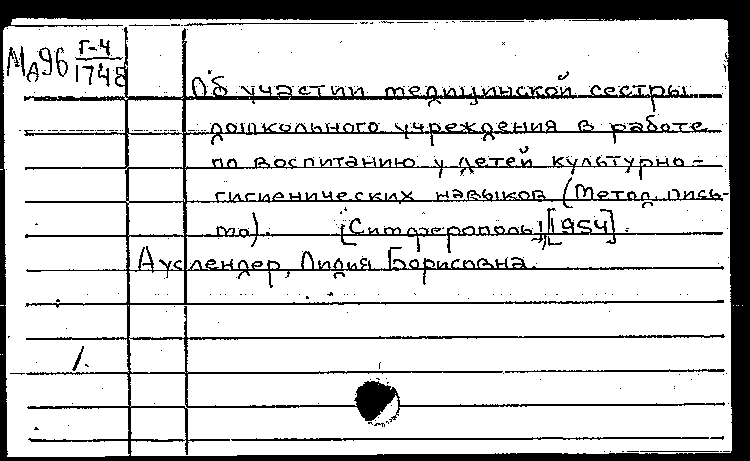 МА96 Г-4/1748
Об участии медицинской сестры
дошкольного учреждения в работе
по воспитанию у детей культурно-
гигиенических навыков (Метод. пись-
мо). [Симферополь], [1954].
Ауслендер, Лидия Борисовна.
1.